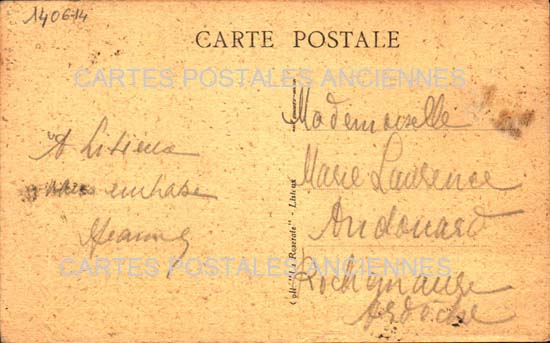 1406-14
CARTE POSTALE
CARTES POSTALES ANCIENNES
A Lisieux
embrasse
Jeanne
Mademoiselle
Marie Laurence
Andouard
Rochemaure
Ardèche
CARTES POSTALES ANCIENNES